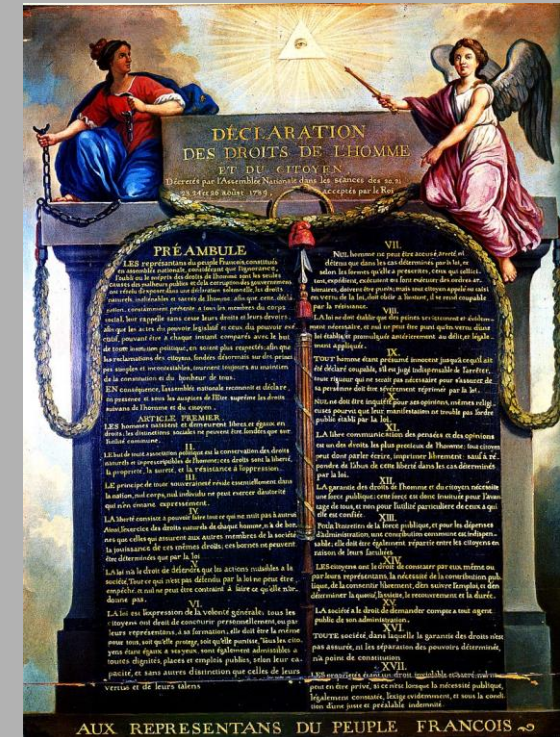 DÉCLARATION
DES DROITS DE L'HOMME
ET DU CITOYEN
Décrétés par l'Assemblée Nationale dans les Séances des 20, 21
23, 24 et 26 août 1789, acceptés par le Roi
PRÉAMBULE
LES représentans du peuple François, constitués
en assemblée nationale, considérant que l'ignorance,
l'oubli ou le mépris des droits de l'homme sont les seules
causes des malheurs publics et de la corruption des gouvernemens
ont résolu d'exposer dans une déclaration solemnelle, les droits
naturels, inaliénables et sacrés de l'homme: afin que cette décla-
ration, constamment présente à tous les membres du corps
social, leur rappelle sans cesse leurs droits et leurs devoirs,
afin que les actes du pouvoir législatif et ceux du pouvoir exé-
cutif, pouvant être à chaque instant comparés avec le but
de toute institution politique, en soient plus respectés; afin que
les réclamations des citoyens, fondées désormais sur des principes
simples et incontestables, tournent toujours au maintien
de la constitution et du bonheur de tous.
EN conséquence, l'assemblée nationale reconnoit et déclare,
en présence et sous les auspices de l'Etre suprême les droits
suivans de l'homme et du citoyen.
ARTICLE PREMIER.
LES hommes naissent et demeurent libres et égaux en
droits; les distinctions sociales ne peuvent être fondées que sur
l'utilité commune.
II.
LE but de toute association politique est la conservation des droits
naturels et imprescriptibles de l'homme; ces droits sont la liberté,
la propriété, la sureté, et la résistance à l'oppression.
III.
LE principe de toute souveraineté réside essentiellement dans
la nation, nul corps, nul individu ne peut exercer d'autorité
qui n'en émane expressément.
IV.
LA liberté consiste à pouvoir faire tout ce qui ne nuit pas à autrui
Ainsi, l'exercice des droits naturels de chaque homme, n'a de bor-
nes que celles qui assurent aux autres membres de la société
la jouissance de ces mêmes droits; ces bornes ne peuvent
être déterminées que par la loi
V.
LA loi n'a le droit de défendre que les actions nuisibles à la
société. Tout ce qui n'est pas défendu par la loi ne peut être
empêché, et nul ne peut être contraint à faire ce qu'elle n'or-
donne pas.
VI.
LA loi est l'expression de la volonté générale; tous les
citoyens ont droit de concourir personnellement, ou par
leurs représentans, à sa formation; elle doit être la même
pour tous, soit qu'elle protege, soit qu'elle punisse. Tous les cito-
yens étant égaux à ses yeux, sont également admissibles à
toutes dignités, places et emplois publics, selon leur ca-
pacité, et sans autres distinction que celles de leurs
vertus et de leurs talens
VII.
NUL homme ne peut être accusé, arreté, ni
détenu que dans les cas déterminés par la loi, et
selon les formes qu'elle a prescrites, ceux qui sollici-
tent, expédient, exécutent ou font exécuter des ordres ar-
bitraires, doivent être punis; mais tout citoyen appelé ou saisi
en vertu de la loi, doit obéir à l'instant, il se rend coupable
par la résistance.
VIII.
LA loi ne doit établir que des peines strictement et évidem-
ment nécessaire, et nul ne peut être puni qu'en vertu d'une
loi établie et promulguée antérieurement au délit, et légale-
ment appliquée.
IX.
TOUT homme étant présumé innocent jusqu'à ce qu'il ait
été déclaré coupable, s'il est jugé indispensable de l'arrêter,
toute rigueur qui ne serait pas nécessaire pour s'assurer de
sa personne doit être sévèrement réprimée par la loi.
NUL ne doit être inquiété pour ses opinions, mêmes religi-
euses pourvu que leur manifestation ne trouble pas l'ordre
public établi par la loi.
XI.
LA libre communication des pensées et des opinions
est un des droits les plus precieux de l'homme: tout citoyen
peut donc parler écrire, imprimer librement: sauf à ré-
pondre de l'abus de cette liberté dans les cas déterminés
par la loi.
XII.
LA garantie des droits de l'homme et du citoyen nécessite
une force publique; cette force est donc instituée pour l'avan-
tage de tous, et non pour l'utilité particuliere de ceux à qui
elle est confiée.
XIII.
POUR l'entretien de la force publique, et pour les dépenses
d'administration, une contribution commune est indispen-
sable; elle doit être également répartie entre les citoyens en
raison de leurs facultées.
XIV.
LES citoyens ont le droit de constater par eux même ou
par leurs représentans, la nécessité de la contribution pub-
lique, de la consentir librement, d'en suivre l'emploi, et d'en
déterminer la quotité, l'assiette, le recouvrement et la durée.
XV.
LA société a le droit de demander compte à tout agent
public de son administration.
XVI.
TOUTE société, dans laquelle la garantie des droits n'est
pas assurée, ni les séparation des pouvoirs déterminée,
n'a point de constitution
XVII.
LES propriétés étant un droit inviolable et sacré, nul ne
peut en être privé, si ce n'est lorsque la nécessité publique,
légalement constatée, l'exige évidemment, et sous la condi-
tion d'une juste et préalable indemnité.
AUX REPRESENTANS DU PEUPLE FRANCOIS